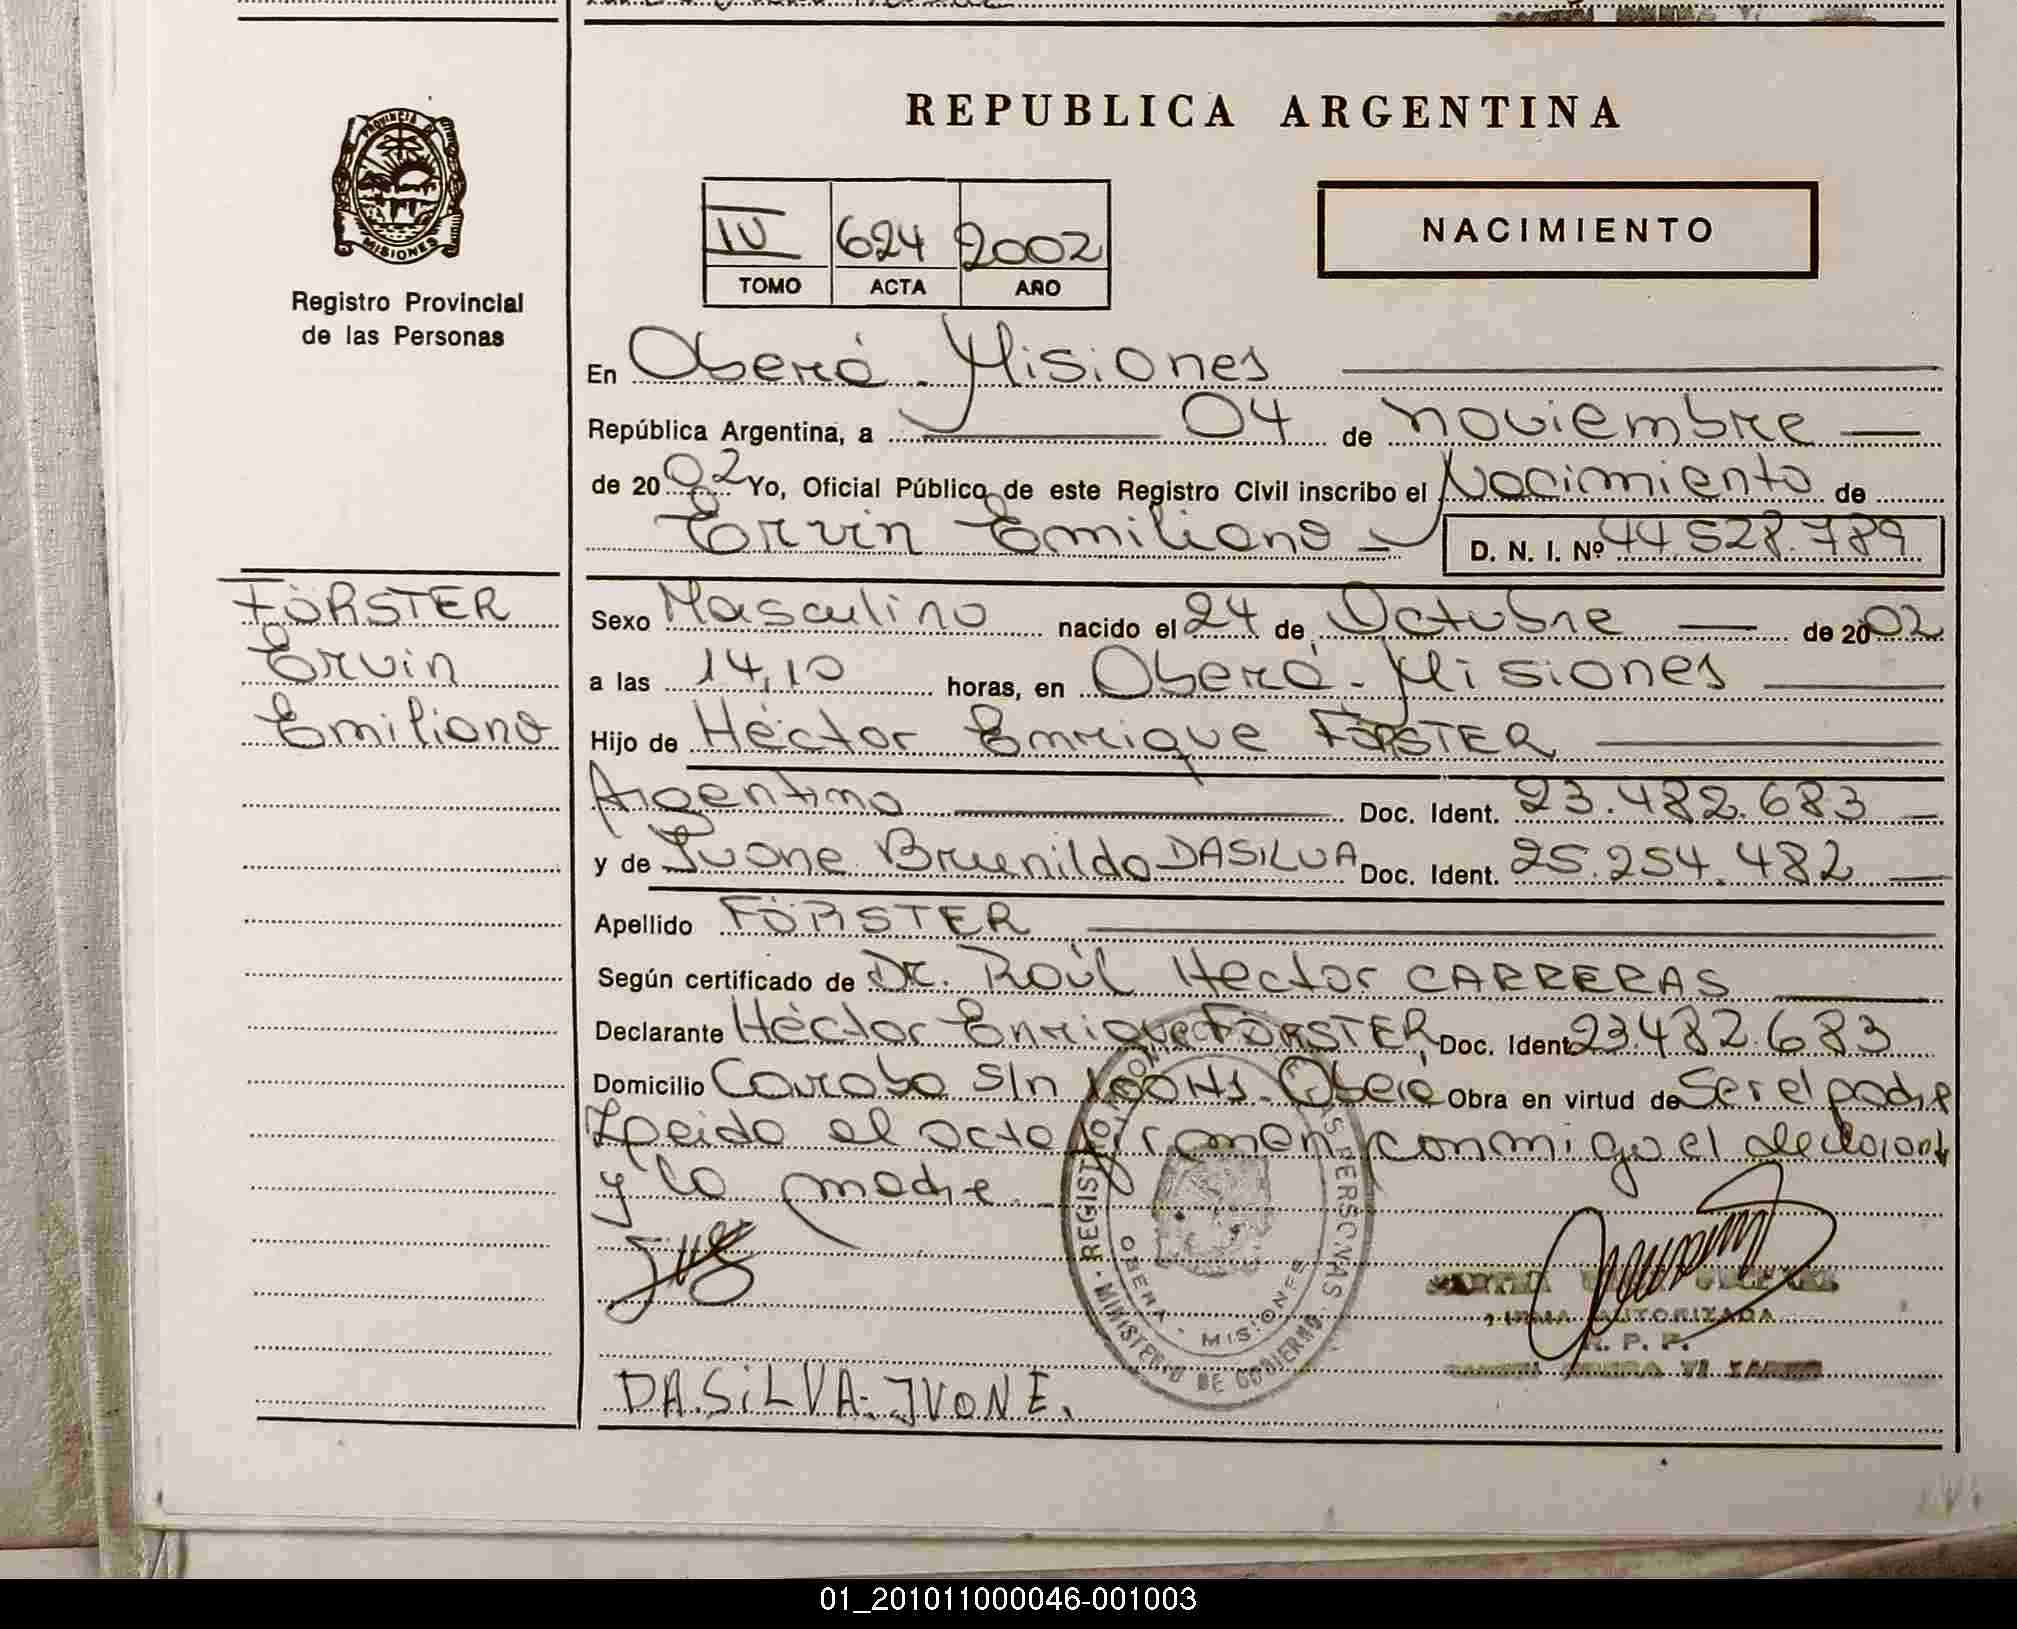 REPUBLICA ARGENTINA
PROVINCIA D
MISIONES
Registro Provincial
de las Personas
IV 624 2002
TOMO ACTA AÑO
NACIMIENTO
En Oberá - Misiones
República Argentina, a 04 de noviembre
de 2002 Yo, Oficial Público de este Registro Civil inscribo el Nacimiento de
Ervin Emiliano D. N. I. Nº 44.528.789
FÖRSTER
Ervin
Emiliano
Sexo Masculino nacido el 24 de Octubre de 2002
a las 14,10 horas, en Oberá - Misiones
Hijo de Héctor Enrique FÖRSTER
Argentino Doc. Ident. 23.482.683
y de Ivone Brunilda DASILVA Doc. Ident. 25.254.482
Apellido FÖRSTER
Según certificado de Dr. Raúl Hector CARRERAS
Declarante Héctor Enrique FÖRSTER, Doc. Ident 23.482.683
Domicilio S/n Oberá Obra en virtud de Ser el padre
Leido el acta firman conmigo el declarante
y la madre
REGISTRO PERSONAS
OBERA - MISIONES
MINISTERIO DE GOBIERNO
FIRMA AUTORIZADA
R. P. P.
DA.SiLVA-IVONE.
01_201011000046-001003